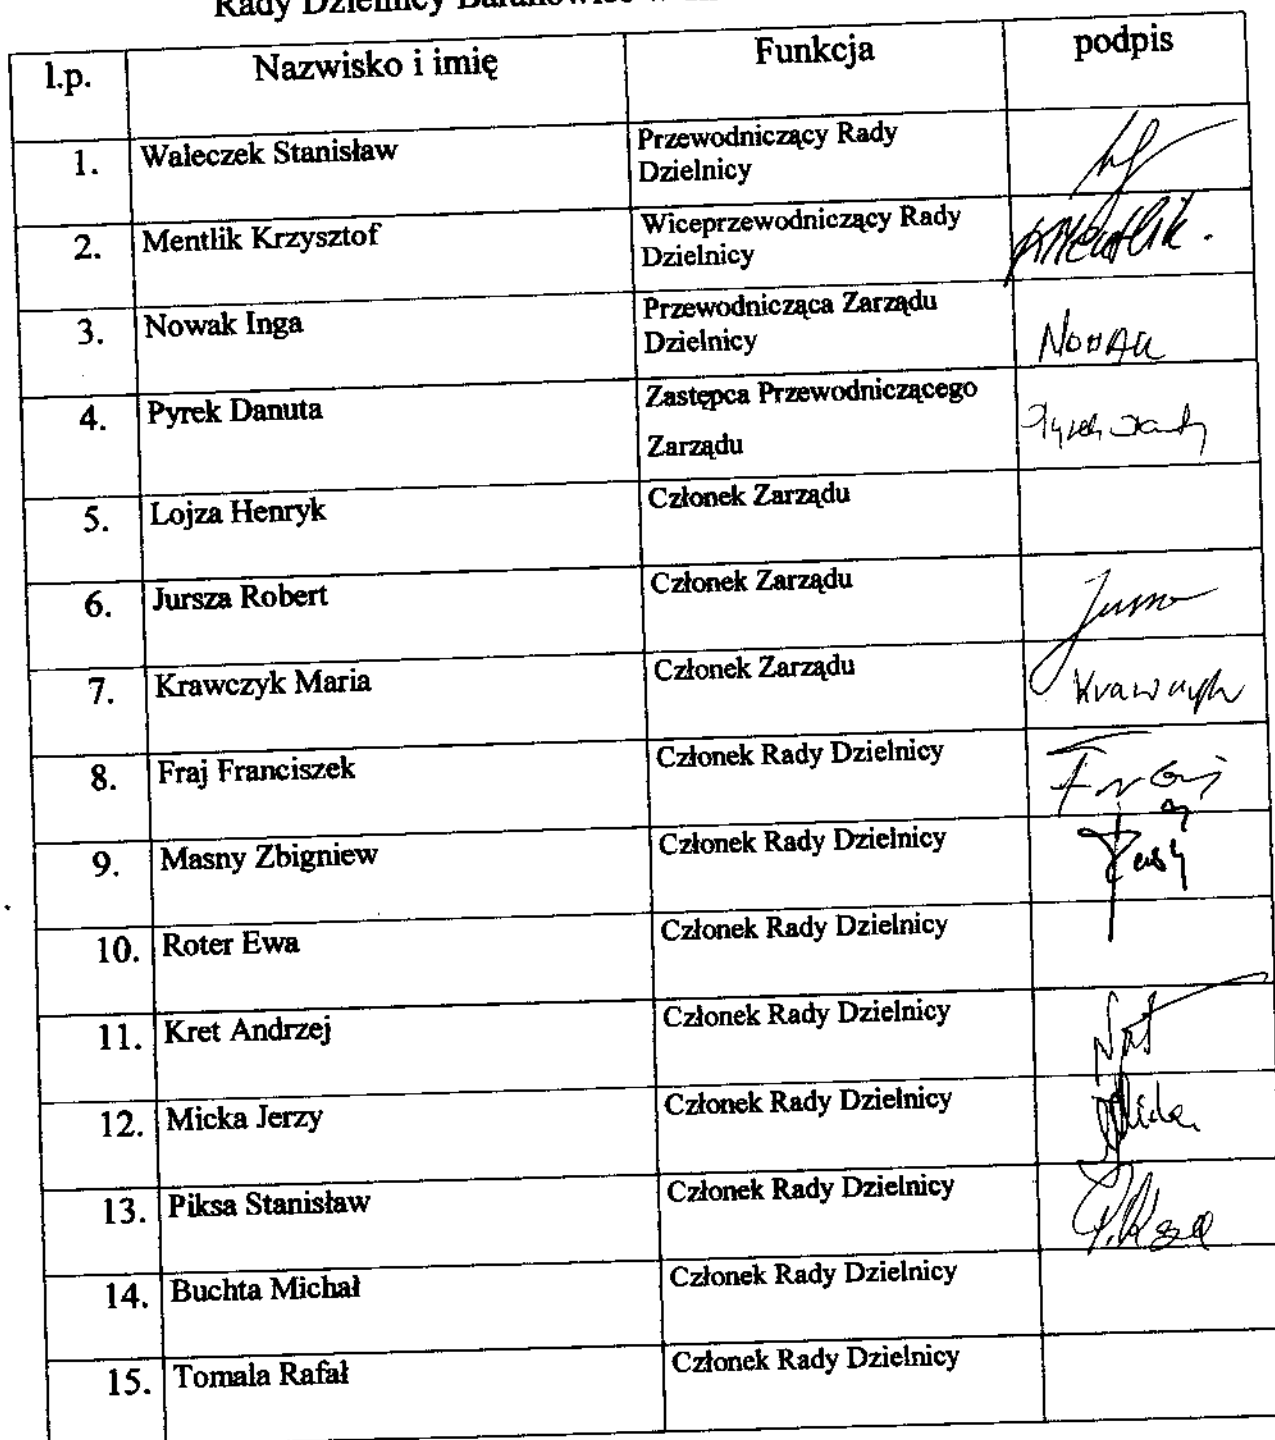 Rady Dzielnicy Baranowice w
l.p. Nazwisko i imię Funkcja podpis
1. Waleczek Stanisław Przewodniczący Rady
Dzielnicy
2. Mentlik Krzysztof Wiceprzewodniczący Rady
Dzielnicy Mentlik.
3. Nowak Inga Przewodnicząca Zarządu
Dzielnicy Nowak
4. Pyrek Danuta Zastępca Przewodniczącego
Zarządu
5. Lojza Henryk Członek Zarządu
6. Jursza Robert Członek Zarządu
7. Krawczyk Maria Członek Zarządu Krawczyk
8. Fraj Franciszek Członek Rady Dzielnicy Fraj
9. Masny Zbigniew Członek Rady Dzielnicy
10. Roter Ewa Członek Rady Dzielnicy
11. Kret Andrzej Członek Rady Dzielnicy
12. Micka Jerzy Członek Rady Dzielnicy
13. Piksa Stanisław Członek Rady Dzielnicy Piksa
14. Buchta Michał Członek Rady Dzielnicy
15. Tomala Rafał Członek Rady Dzielnicy